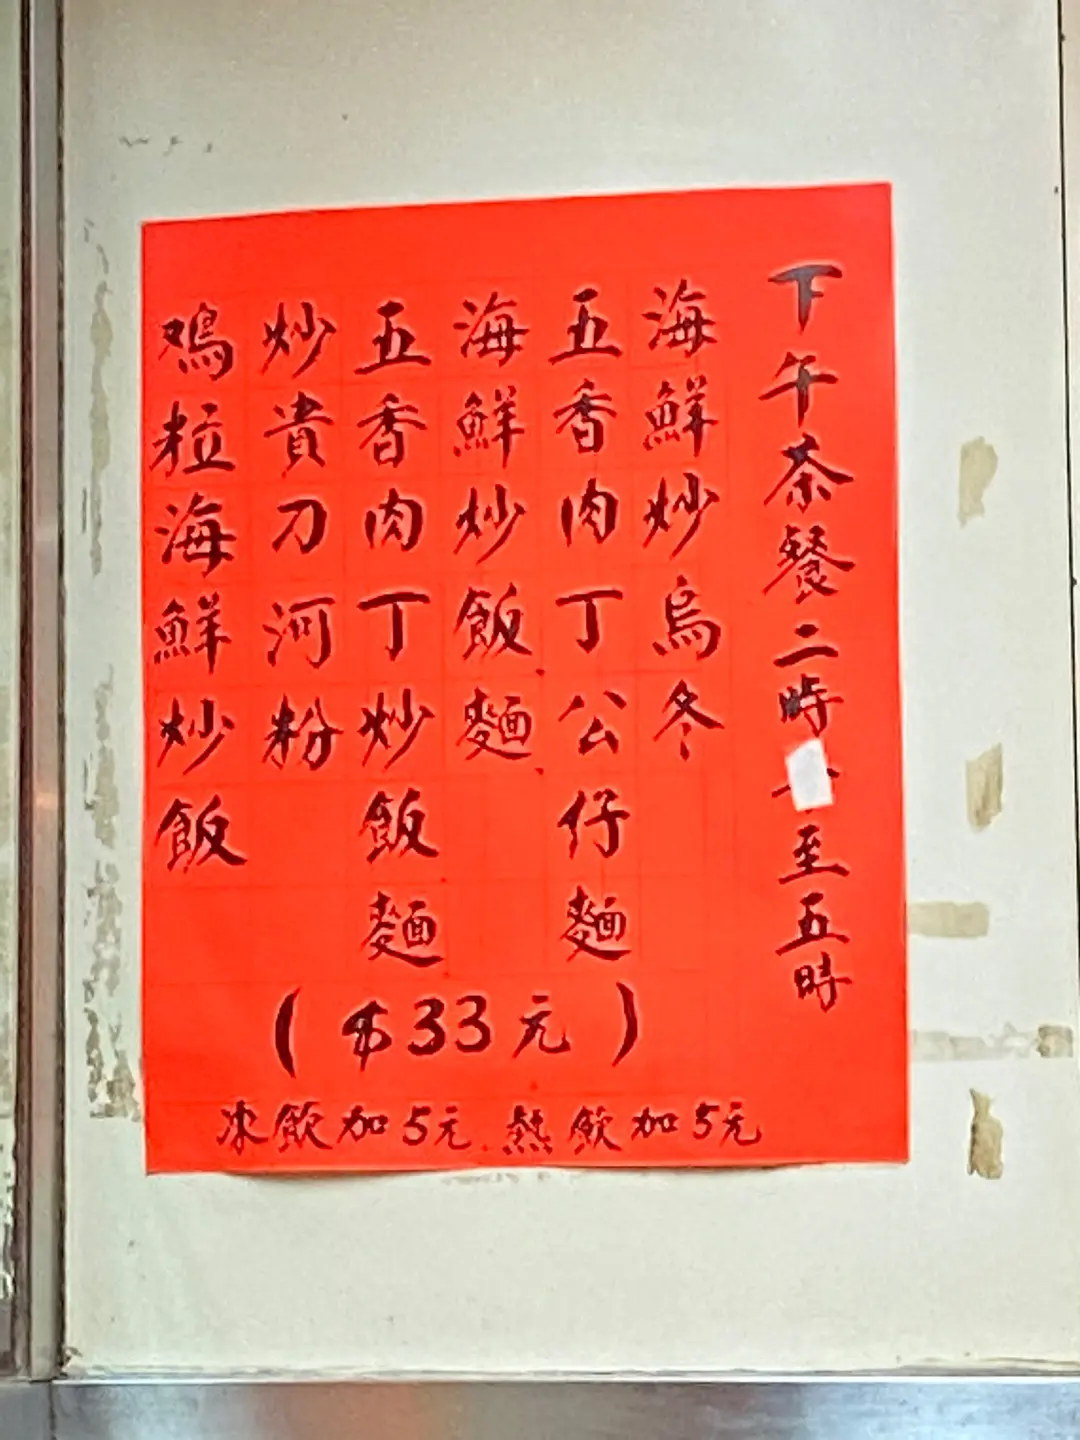 下午茶餐二時至五時
海鮮炒烏冬
五香肉丁公仔麵
海鮮炒飯麵
五香肉丁炒飯麵
炒貴刀河粉
鳮粒海鮮炒飯
($33元)
凍飲加5元 熱飲加5元